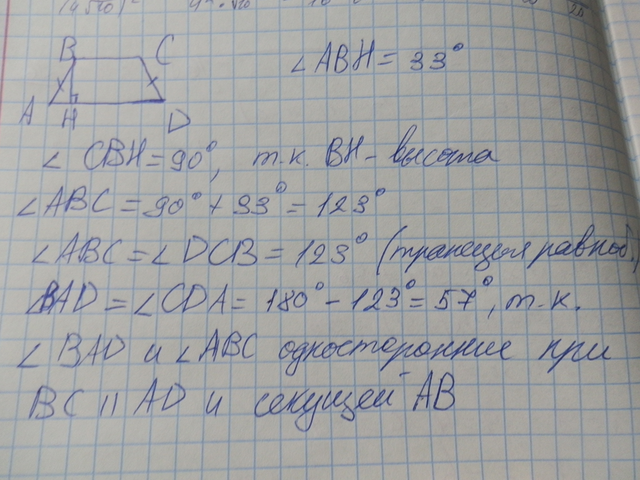 B C
∠ABH = 33°
A H D
∠ CBH = 90°, т.к. BH - высота
∠ABC = 90° + 33° = 123°
∠ABC = ∠DCB = 123° (трапеция равноб.)
∠BAD = ∠CDA = 180° - 123° = 57°, т.к.
∠ BAD и ∠ABC односторонние при
BC || AD и секущей AB